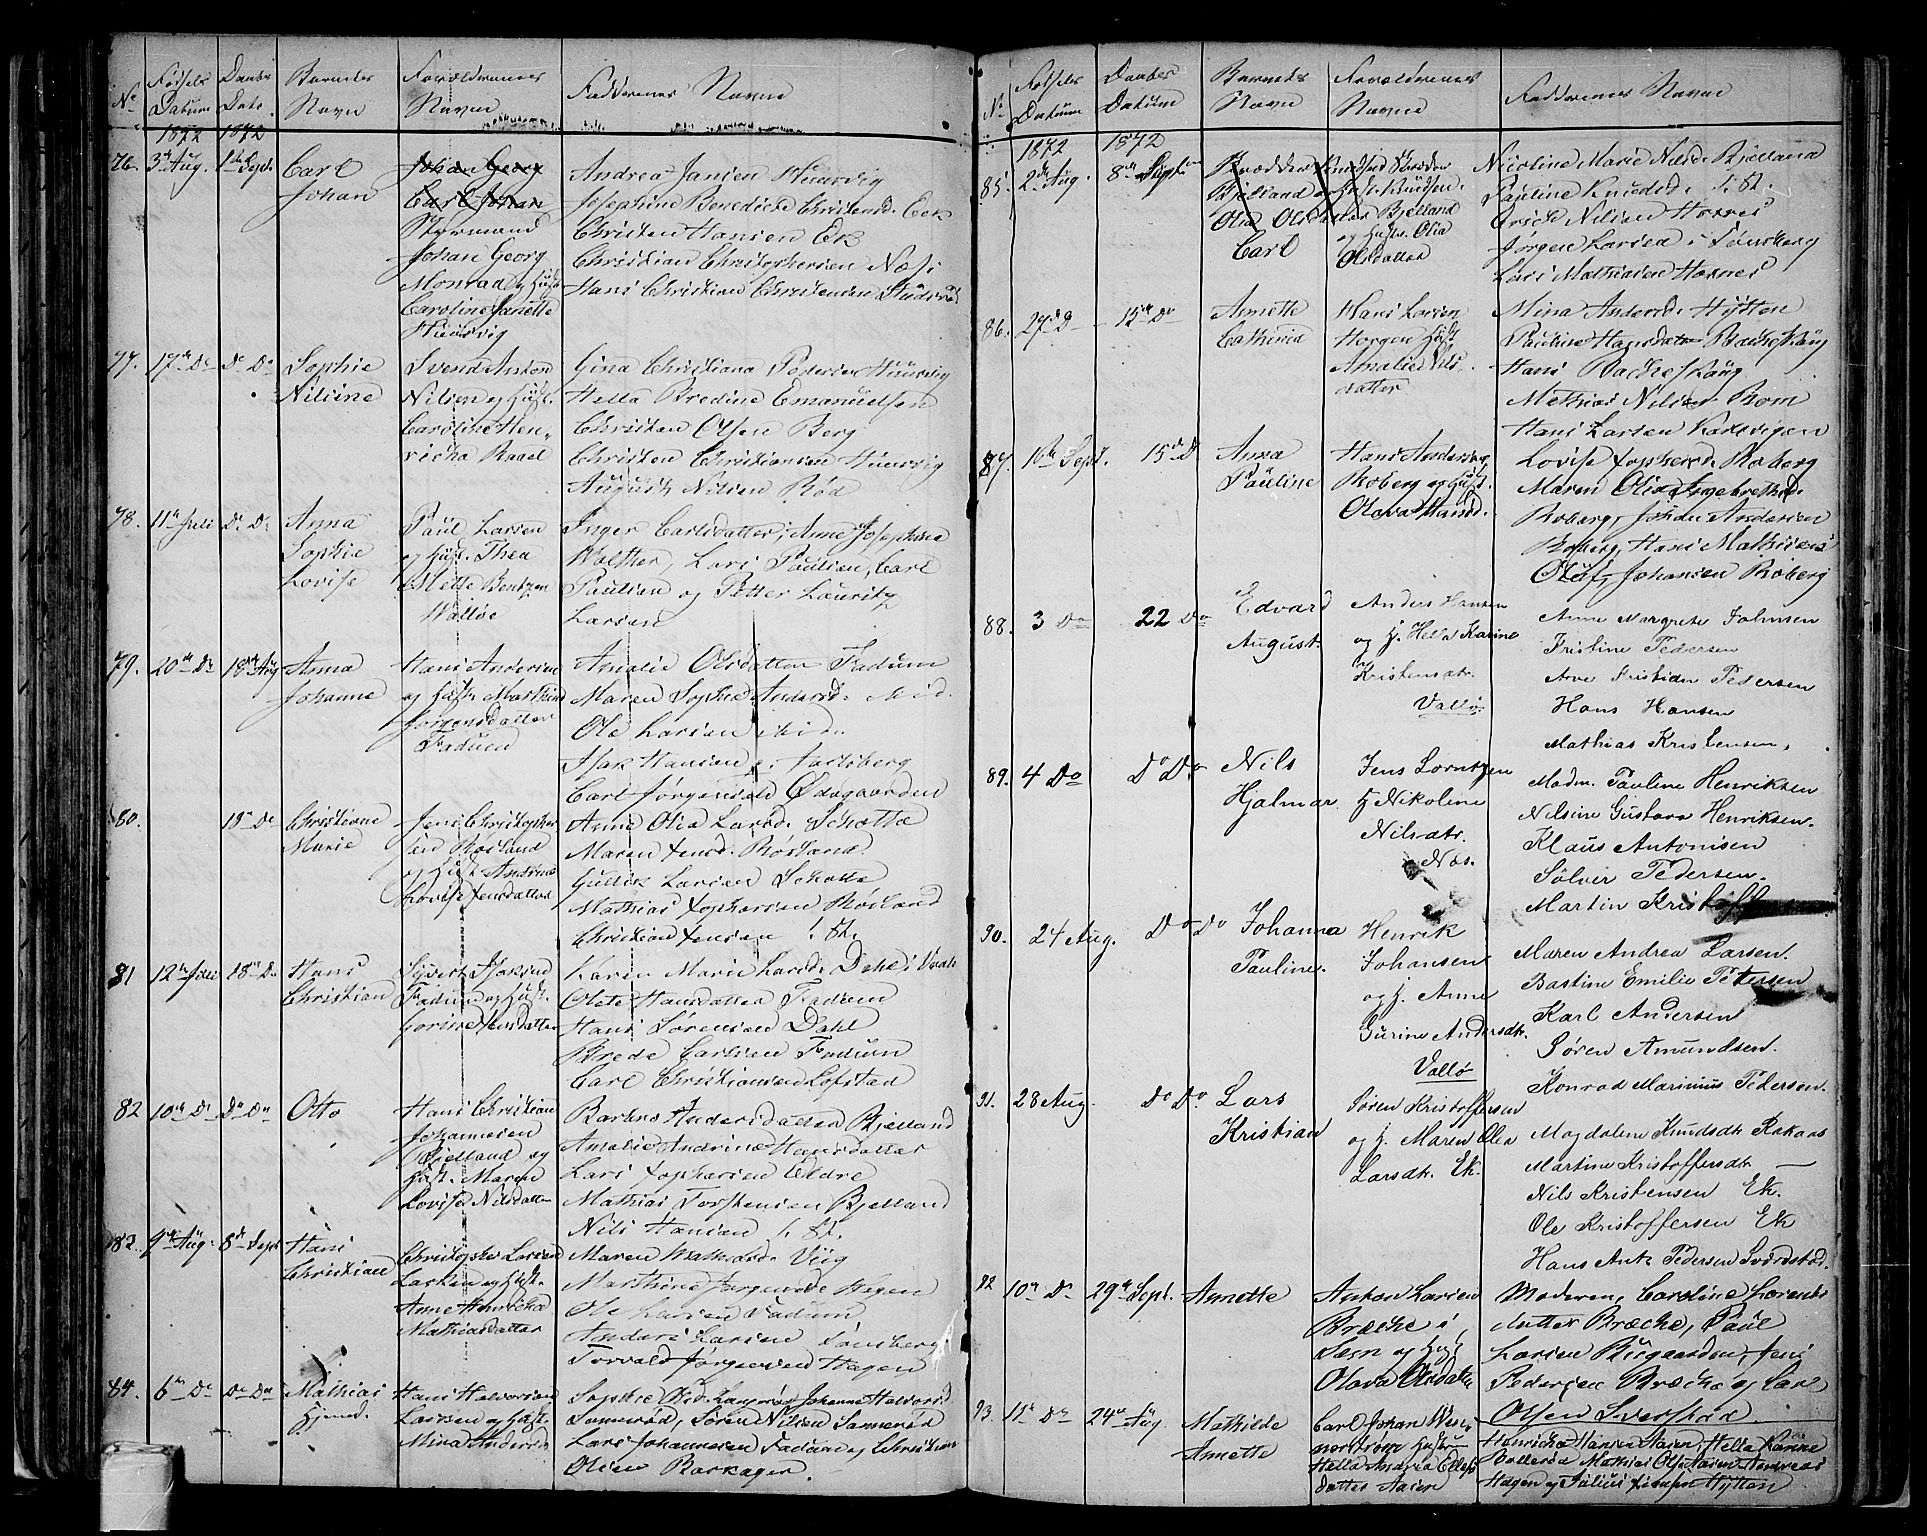 No Fødsels Datum Daabs Dato Barnets Navn Forældrenes Navne Faddernes Navne
1872 1872
76. 3de Aug. 1ste Sept. Carl Johan
Johan Georg
Carl Johan
Styrmand
Johan Georg
Monrad og Hust.
Caroline Janette
Huusvig
Andrea Jansen Huusvig
Josephine Benedicte Christensd. Eek
Christen Hansen Ek
Christian Christophersen Næs
Hans Christian Christensen
77. 17de Do Do Do Sophie Nilsine
Svend Anton
Nilsen og Hust.
Caroline Hen-
richa Raael
Gina Christiana Pedersen Huusvig
Hella Bredine Emanuelsen
Christian Olsen Berg
Christen Christiansen Huusvig
August Nilsen Rød
78. 11te Juli Do Do Anna Sophie Lovise
Paul Larsen
og Hust. Thea
Mette Bentzen
Valløe
Inger Carlsdatter, Anne Josephine
Walther, Lars Paulsen, Carl
Paulsen og Petter Lauritz
Larsen
79. 20de Do 18de Aug Anna Johanne
Hans Andersen
og Hust. Marthine
Jørgensdatter
Fadum
Amalie Olsdatter Fadum
Maren Sophie Andersd.
Ole Larsen
Isak Hansen Jarlsberg
Carl Jørgensen Ødegaarden
80. 18de Do Christiane Marie
Jens Christopher-
sen Rosland
og Hust. Andrine
Lovise Jensdatter
Anne Olia Larsd. Skotte
Maren Jensd. Rosland
Gullik Larsen Skotte
Mathias Jophersen Rosland
Christian Jensen
81 12te Juli 18de Do Hans Christian
Syvert Isaksen
Fadum og Hust.
Gorine Hansdatter
Karen Marie Larsd. Dahl
Olete Hansdatter Fadum
Hans Sørensen Dahl
Brede Carlsen Fadum
Carl Christiansen Lofstad
82 10de Do Do Do Otto
Hans Christian
Johannesen
Bjelland og
Hust. Maren
Lovise Nilsdatter
Andersdatter Bjelland
Amalie Andrine Hansdatter
Lars Jophersen Eldre
Mathias Torstensen Bjelland
Nils Hansen
83. 9de Aug. 8de Sept Hans Christian
Christopher Larsen
og Hust.
Anne Henricka
Mathiasdatter
Maren Mathisd. Viig
Marthine Jørgensd. Hagen
Ole Larsen Fadum
Anders Larsen Tønsberg
Torvald Jørgensen Hagen
84. 6te Do Do Do Mathias
Hans Halvorsen
Larsen og Hust.
Mina Andersd.
Sophie Olsd. Johanne Halvorsd.
Sannerød, Søren Nilsen Sannerød
Lars Johannesen Fadum og Christian
Olsen Barkager.
No Fødsels Datum Daabs Datum Barnets Navn Forældrenes Navne Faddernes Navne
1872 1872
85. 2de Aug. 8de Sept.
Bjelland
Carl
Knudsen.
Bjelland
og Hust. Olia
Olsdatter
Nicoline Marie Nilsd. Bjelland
Pauline Knudsd.
Nilsen Hoxnes
Jørgen Larsen i Tønsberg
Lars Mathiasen Hoxnes
86. 27de Do 15de Do Annette Cathinca
Hans Larsen
Horgen Hust.
Amalie Nils-
datter
Mina Andersd. Hytten
Pauline Hansdatter Backeskaug
Hans Backeskaug
Mathias Nilsen Rom
Hans Larsen Karlsvigen
87. 16de Sept. 15de Do Anna Pauline
Hans Andersen
Roberg og Hust.
Olava Hansd.
Lovise Jophersd. Roberg
Maren Olia Ingebrethsd.
Roberg, Johan Andersen
Roberg, Hans Mathisen
Oluf Johansen Roberg
88. 3 Do 22 Do Edvard August.
Anders Hansen
og H. Hella Karine
Kristensdtr.
Vallø
Anne Margrete Johnsen
Kristine Pedersen
Arve Kristian Pedersen
Hans Hansen
Mathias Kristensen.
89. 4 Do Do Do Nils Hjalmar
Jens Lorntzen
H. Nikoline
Nilsdtr.
Næs.
Madm. Pauline Henriksen
Nilsine Gustava Henriksen.
Klaus Antonisen
Sølver Pedersen.
Martin Kristoff
90. 24 Aug. Do Do Johanna Pauline.
Henrik
Johansen
og H. Anne
Gurine Andersdtr.
Vallø
Maren Andrea Larsen.
Bastine Emilie Petersen
Karl Andersen
Søren Amundsen.
Konrad Marinius Pedersen.
91. 28 Aug. Do Do Lars Kristian
Søren Kristoffersen
og H. Maren Olea
Larsdtr. Ek.
Magdalene Knudsdtr. Rakaas
Martine Kristoffersdtr. —
Nils Kristensen Ek.
Ole Kristoffersen Ek
Hans Ant. Pedersen Sværdstad.
92 10de Do 29de Sept. Annette
Anton Larsen
Bræcke i
Sem og Hust.
Olava Olsdatter
Moderen, Caroline Lorents-
datter Bræcke, Paul
Larsen Biigaarden, Jens
Pedersen Bræcke og Carl
Olsen
93. 11te Do 24de Aug Mathilde Annette
Carl Johan Wen-
nerstrøm Hustru
Hella Maria Ellefs-
datter Aasen
Henricka Hansen Aasen, Hella Karine
Bollerød Mathias Olsen Aasen, Andreas
Hagen og Julius Jensen Hytten